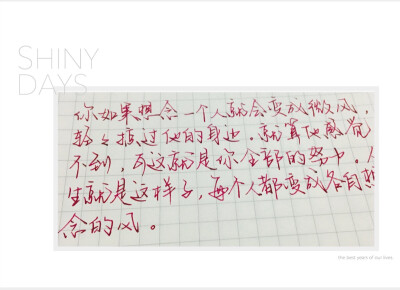 SHINY
DAYS
你如果想念一个人就会变成微风，
轻々掠过他的身边。就算他感觉
不到，可这就是你全部的努力。人
生就是这样子，每个人都变成各自想
念的风。
the best years of our lives